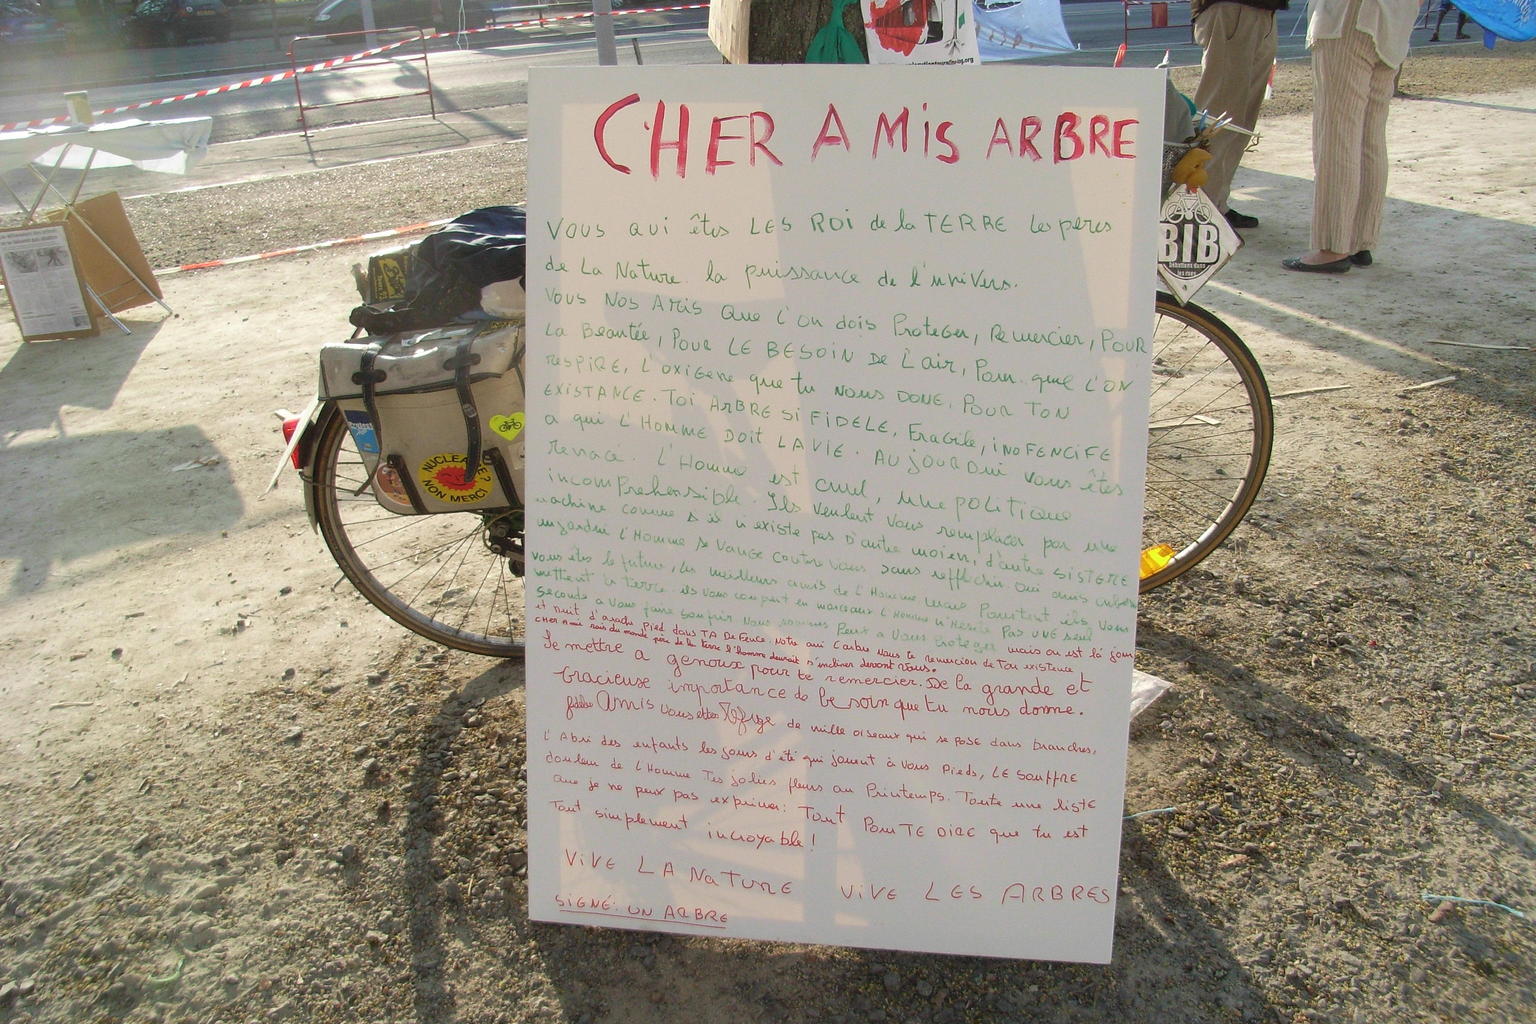 CHER AMIS ARBRE
VOUS QUI êtes LES ROI de la TERRE les peres
de La Nature. la puissance de l'univers.
Vous Nos Amis que l'on dois Proteger, Remercier, POUR
La Beautée, POUR LE BESOIN DE L'air, Pour que L'ON
RESPIRE, L'OXIGENE que tu NOUS DONE. POUR TON
EXISTANCE. TOI ARBRE SI FIDELE, Fragile, iNOFENCIFE
a qui L'HOMME DOIT LA VIE. AUJOURDUI vous êtes
Menacé. L'Homme est cruel, une politique
incomprehensible. Ils veulent vous remplacer par une
machine comme s'il n'existe pas D'autre moien, d'autre SISTERE
aujourdui L'Homme se vange contre vous sans reflechir. qui
vous êtes le future, les meilleurs amis de l'Homme Pourtant ils vous
mettent à terre. ils vous coupent en morceaux L'Homme N'Hesite PAS UNE seul
seconde a vous faire soufrir. Nous Peut a vous proteger mais on est là jour
et nuit d'arache pied dans TA DeFence. Notre ami L'arbre Nous te remercion de Ton existence
CHER Amis rois du monde père de la terre l'homme devrait s'incliner devant vous.
Se mettre a genoux pour te remercier. De la grande et
Gracieuse importance de besoin que tu nous donne.
fidele Amis vous ettes Refuge de mille oiseaux qui se POSE dans branches,
L'Abri des enfants les jours d'été qui jouent à vous Pieds, LE SOUFFRE
douleur de L'Homme Tes jolies fleurs au Printemps. Toute une liste
que je ne peux pas exprimer: Tout Pour TE DIRE que tu est
Tout simplement incroyable!
VIVE LA NATURE VIVE LES ARBRES
SIGNÉ: UN ARBRE
NUCLEAIRE?
NON MERCI
BIB